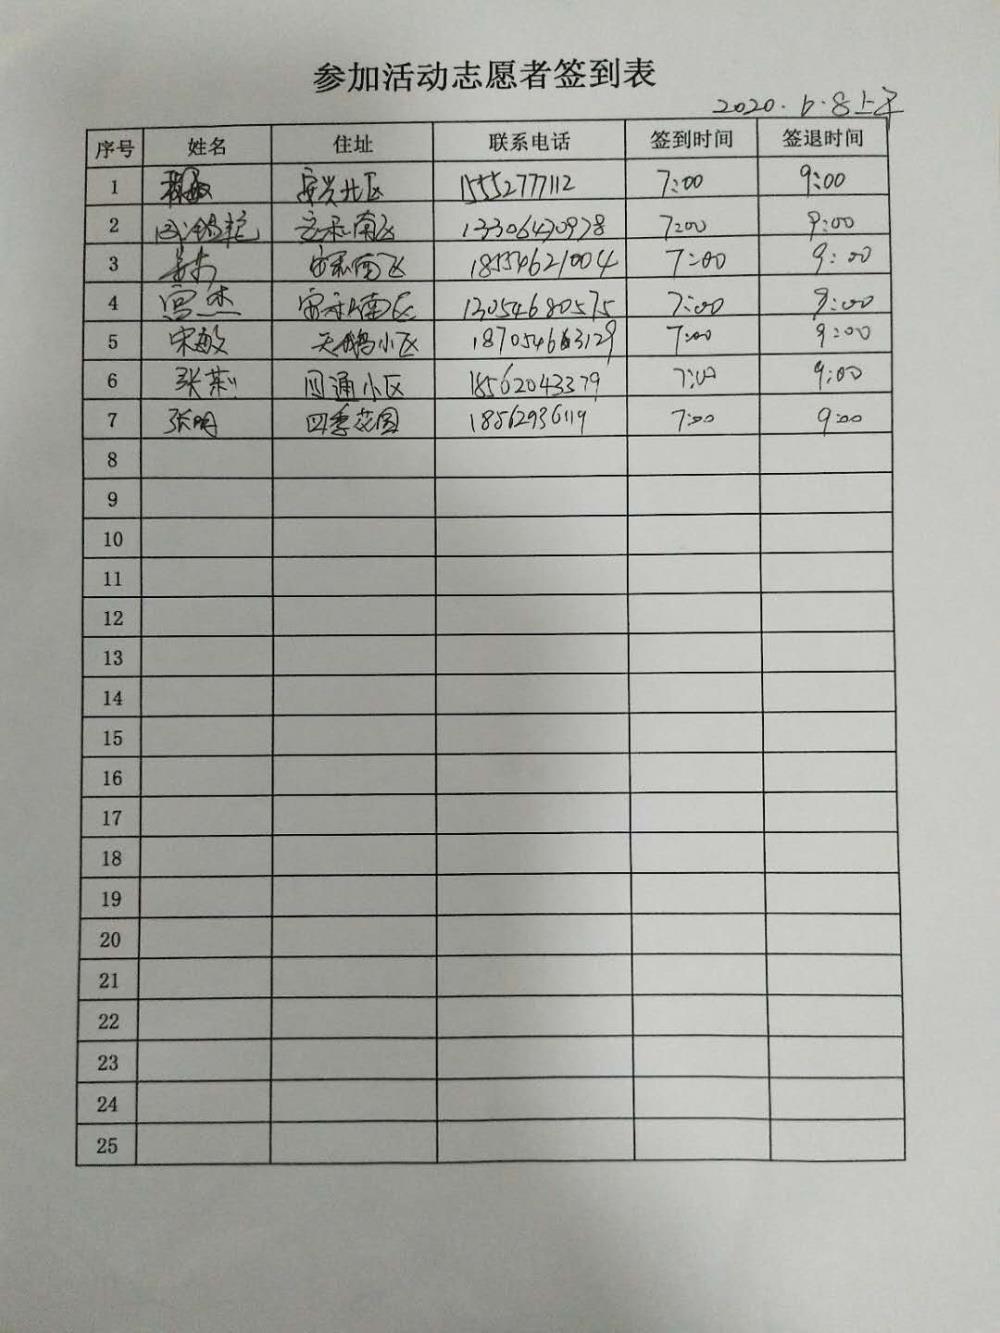 参加活动志愿者签到表
2020.6.8上午
序号 姓名 住址 联系电话 签到时间 签退时间
1 安兴北区 15552777112 7:00 9:00
2 安和南区 13306430978 7:00 9:00
3 安和南区 18554621004 7:00 9:00
4 宫杰 安和南区 13054680575 7:00 9:00
5 宋敏 天鹅小区 7:00 9:00
6 张莉 园通小区 18562043379 7:00 9:00
7 张明 四季花园 18562936119 7:00 9:00
8
9
10
11
12
13
14
15
16
17
18
19
20
21
22
23
24
25